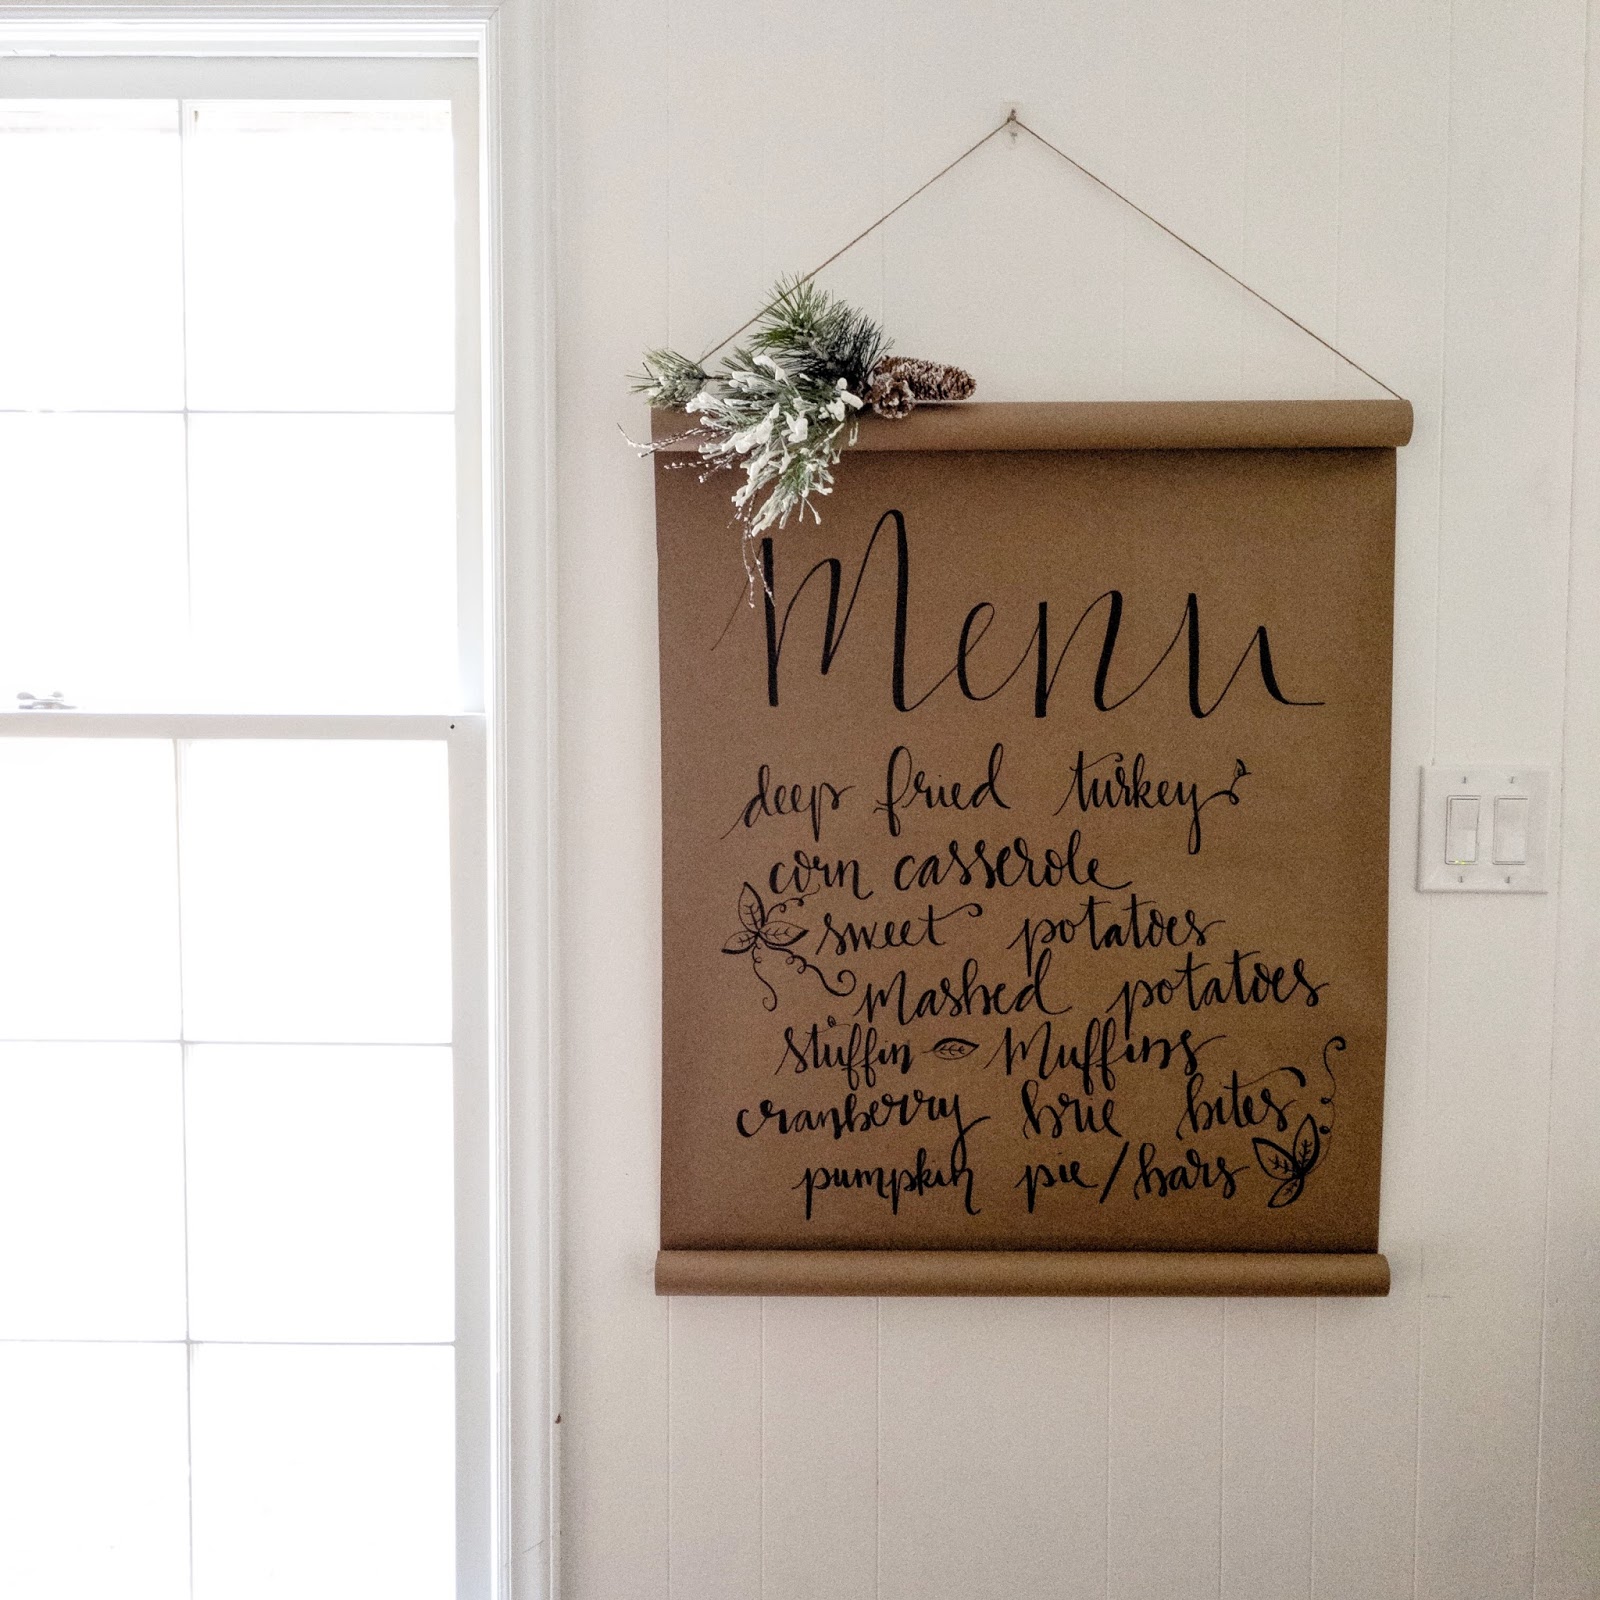 Menu
deep fried turkey
corn casserole
sweet potatoes
mashed potatoes
stuffin muffins
cranberry brie bites
pumpkin pie/bars